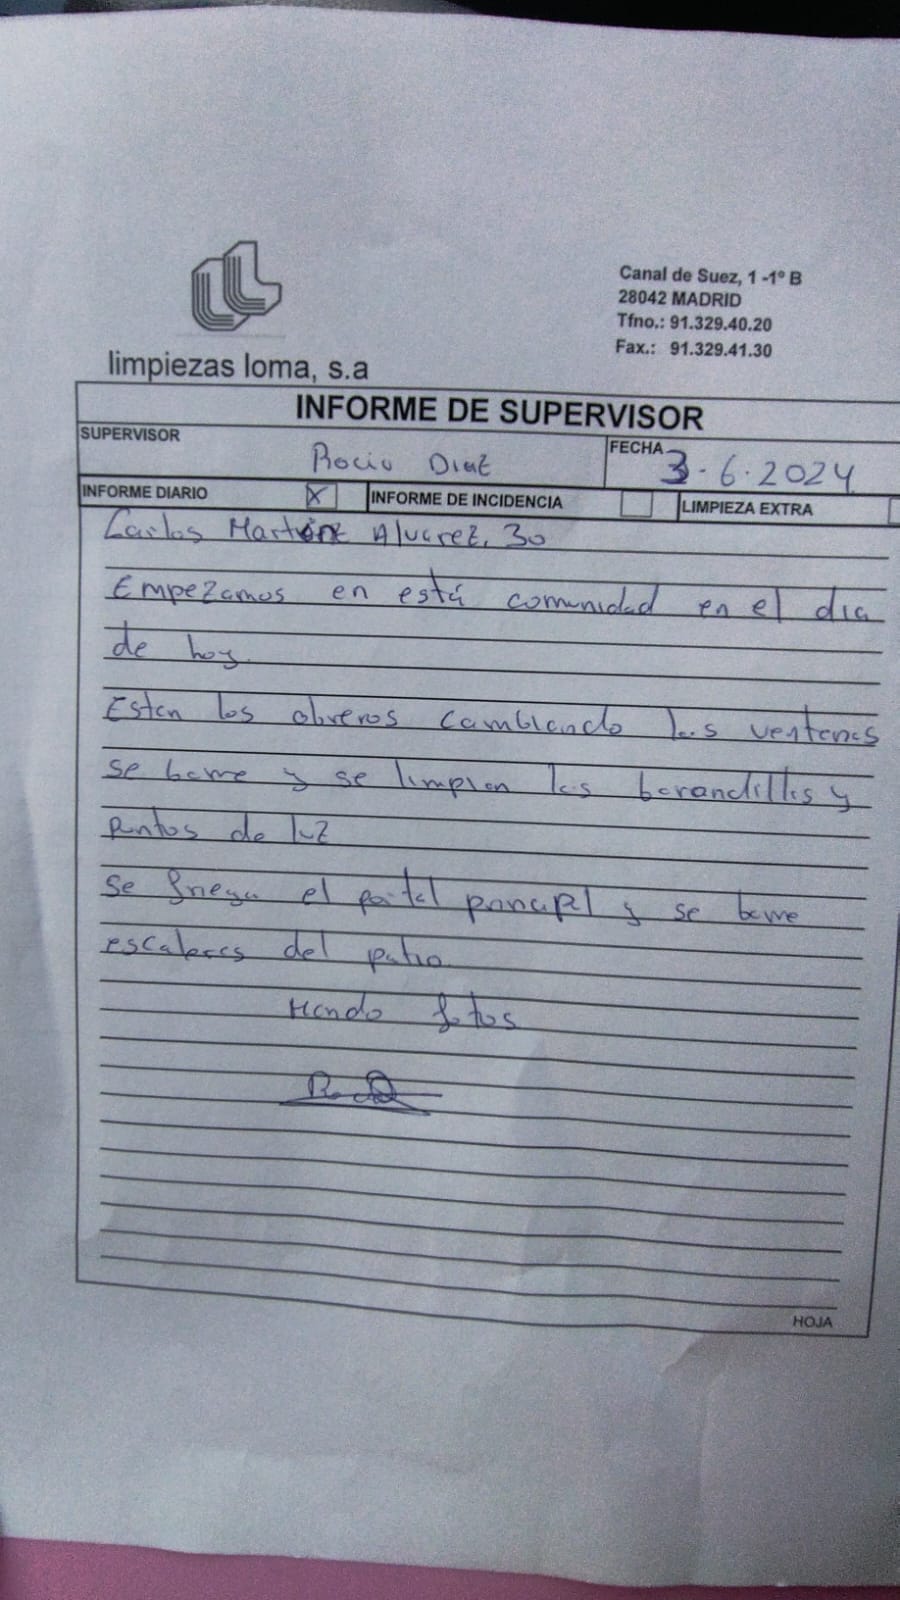 Canal de Suez, 1 -1º B
28042 MADRID
Tfno.: 91.329.40.20
Fax.: 91.329.41.30
limpiezas loma, s.a
INFORME DE SUPERVISOR
SUPERVISOR
Rocio Diaz
FECHA
3-6-2024
INFORME DIARIO X INFORME DE INCIDENCIA LIMPIEZA EXTRA
Carlos Martín Alvarez, 30
Empezamos en está comunidad en el dia
de hoy.
Estan los obreros cambiando las ventanas
se barre y se limpian las barandillas y
puntos de luz
se friega el portal principal y se barre
escaleras del patio.
Mando fotos
HOJA